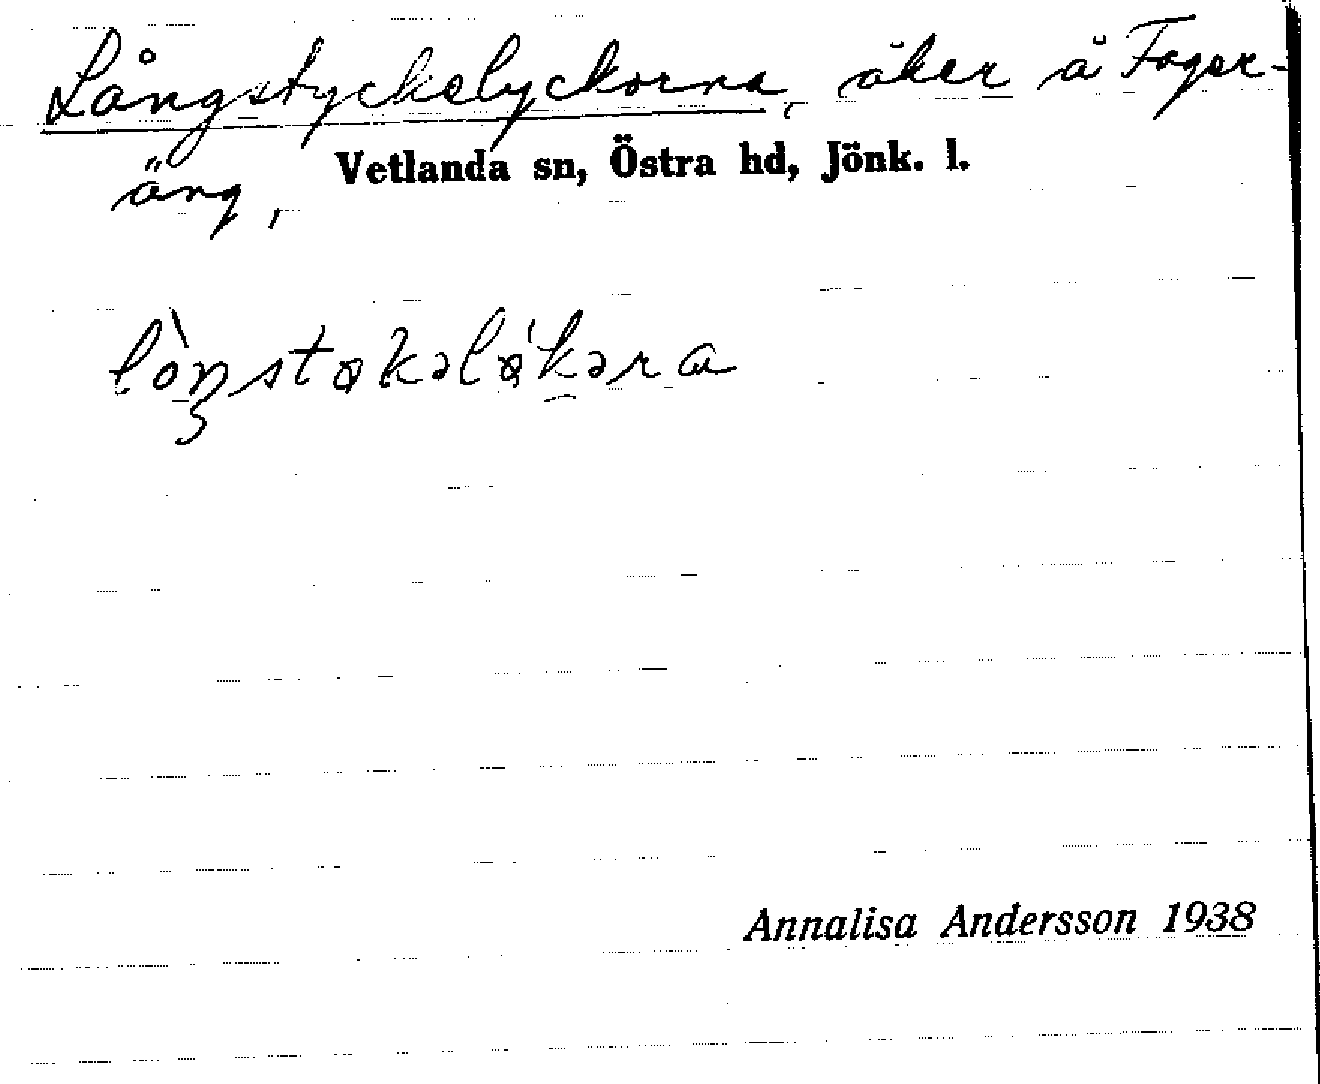 Långstyckelyckorna, åker å Fager-
äng,
Vetlanda sn, Östra hd, Jönk. l.
lòŋstøkəlǿkəra
Annalisa Andersson 1938